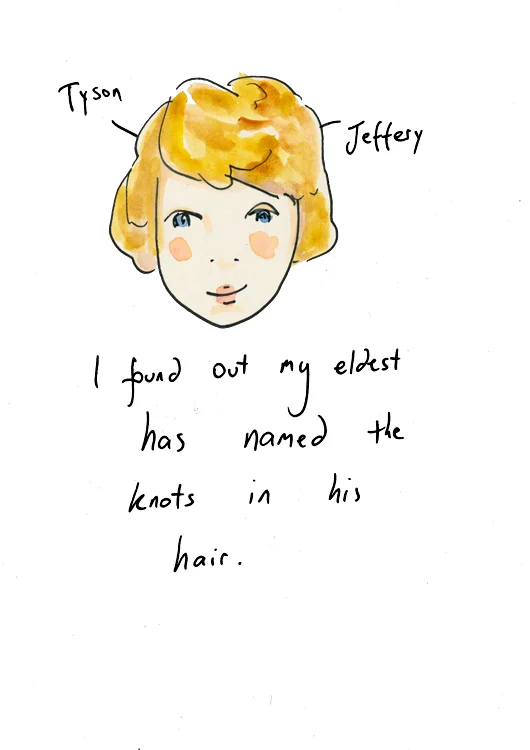 Tyson
Jeffery
I found out my eldest
has named the
knots in his
hair.